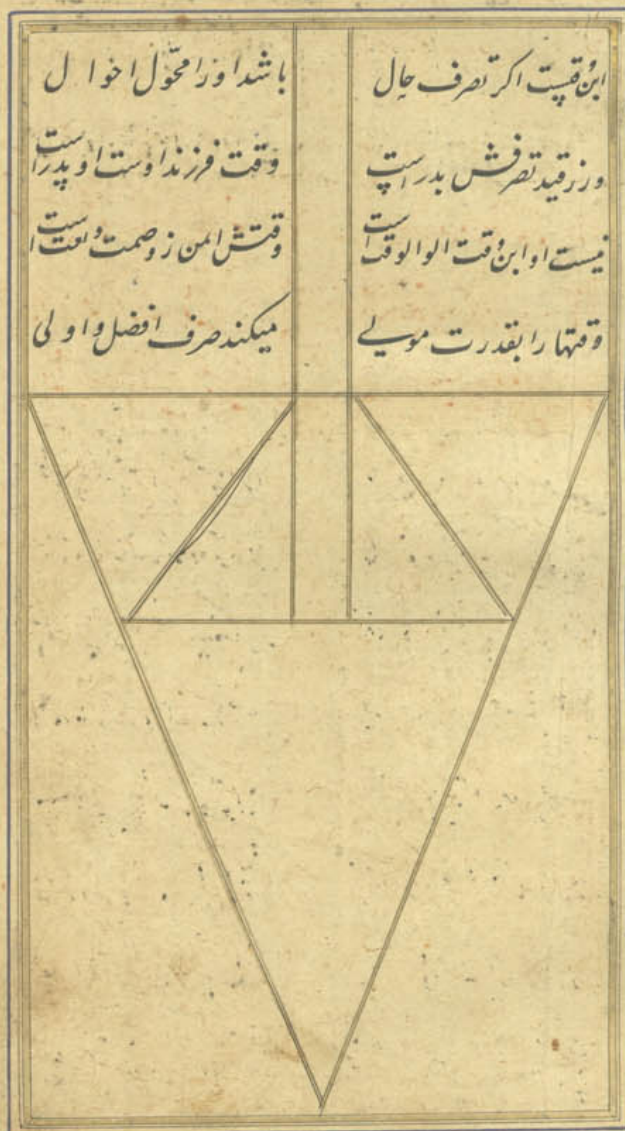 ابن وقتست اکر تصرف حال باشد او را محوّل احوال
ورز قید تصرفش بدر است وقت فرزند اوست او پدر است
نیست او ابن وقت ابوالوقت است وقتش ایمن ز وصمت و مقت است
وقتها را بقدرت مولی میکند صرف افضل و اولی